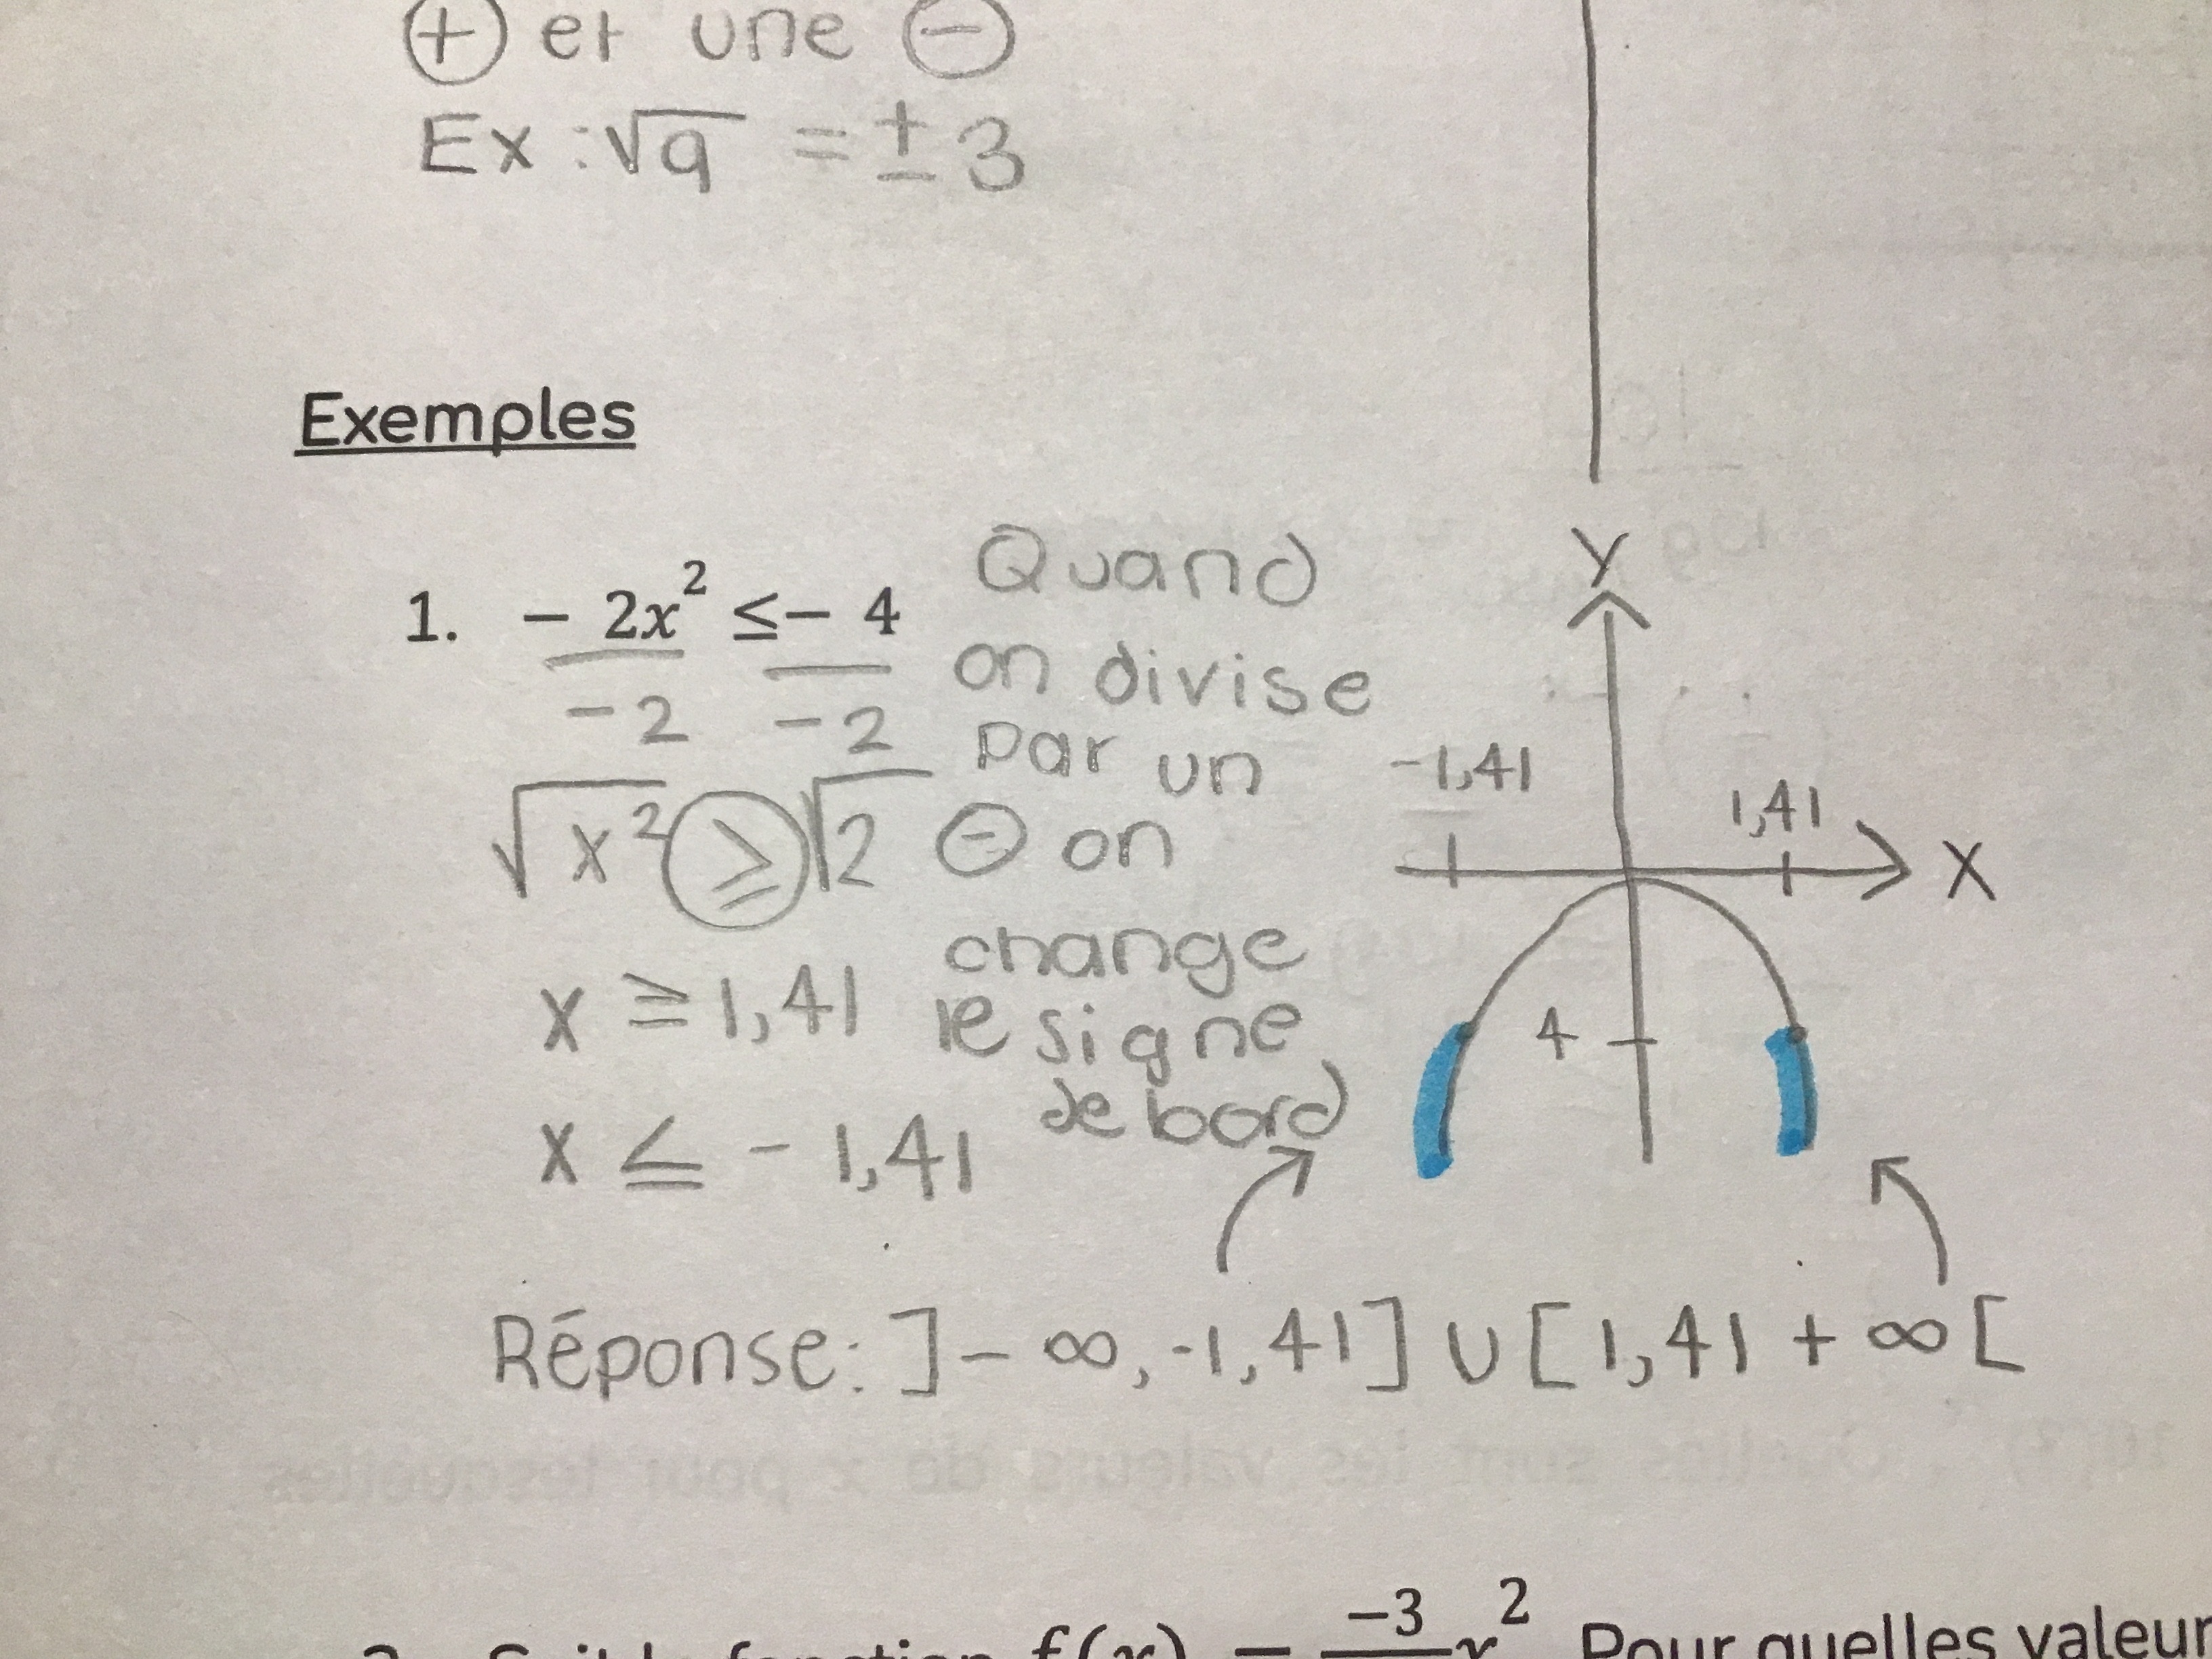 ⊕ et une ⊖
Ex : √9 = ± 3
Exemples
1. − 2x² ≤ − 4
-2 -2
√x² ≥ √2
x ≥ 1,41
x ≤ - 1,41
Quand
on divise
par un
⊖ on
change
le signe
de bord
Y
-1,41
1,41
X
4
Réponse: ]- ∞, -1,41] ∪ [1,41 + ∞ [
f(x) = −3 x² Pour quelles valeur